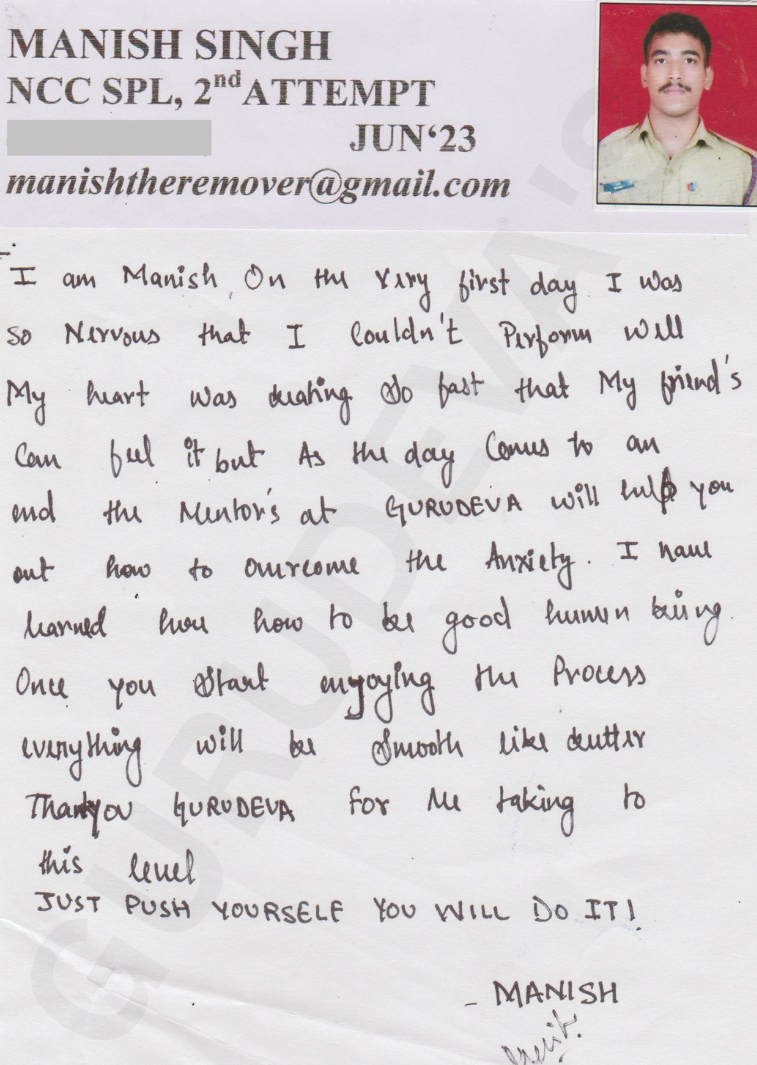 MANISH SINGH
NCC SPL, 2nd ATTEMPT
JUN‘23
manishtheremover@gmail.com
I am Manish, On the very first day I was
so Nervous that I Couldn't Perform Well
My heart was beating So fast that My friend's
Can feel it but As the day Comes to an
end the Mentor's at GURUDEVA will help you
out how to overcome the Anxiety. I have
learned here how to be good human being.
Once you Start enjoying the Process
everything will be Smooth like butter
Thankyou GURUDEVA for Me taking to
this level
JUST PUSH YOURSELF YOU WILL DO IT!
- MANISH
GURUDEVA'S